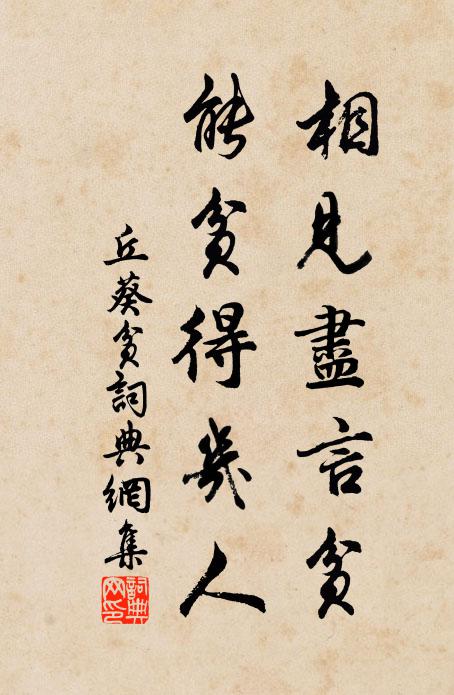 相見盡言貧
能貧得幾人
丘葵貧詞典網集
詞典網印